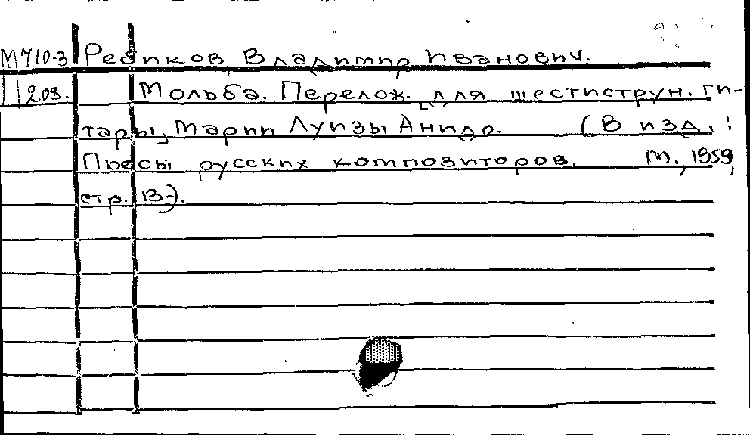 М710-3 Ребиков, Владимир Иванович.
1208. Мольба. Перелож. для шестиструн. ги-
тары Марии Луизы Анидо. (В изд.:
Пьесы русских композиторов. М., 1959,
стр. 13-).